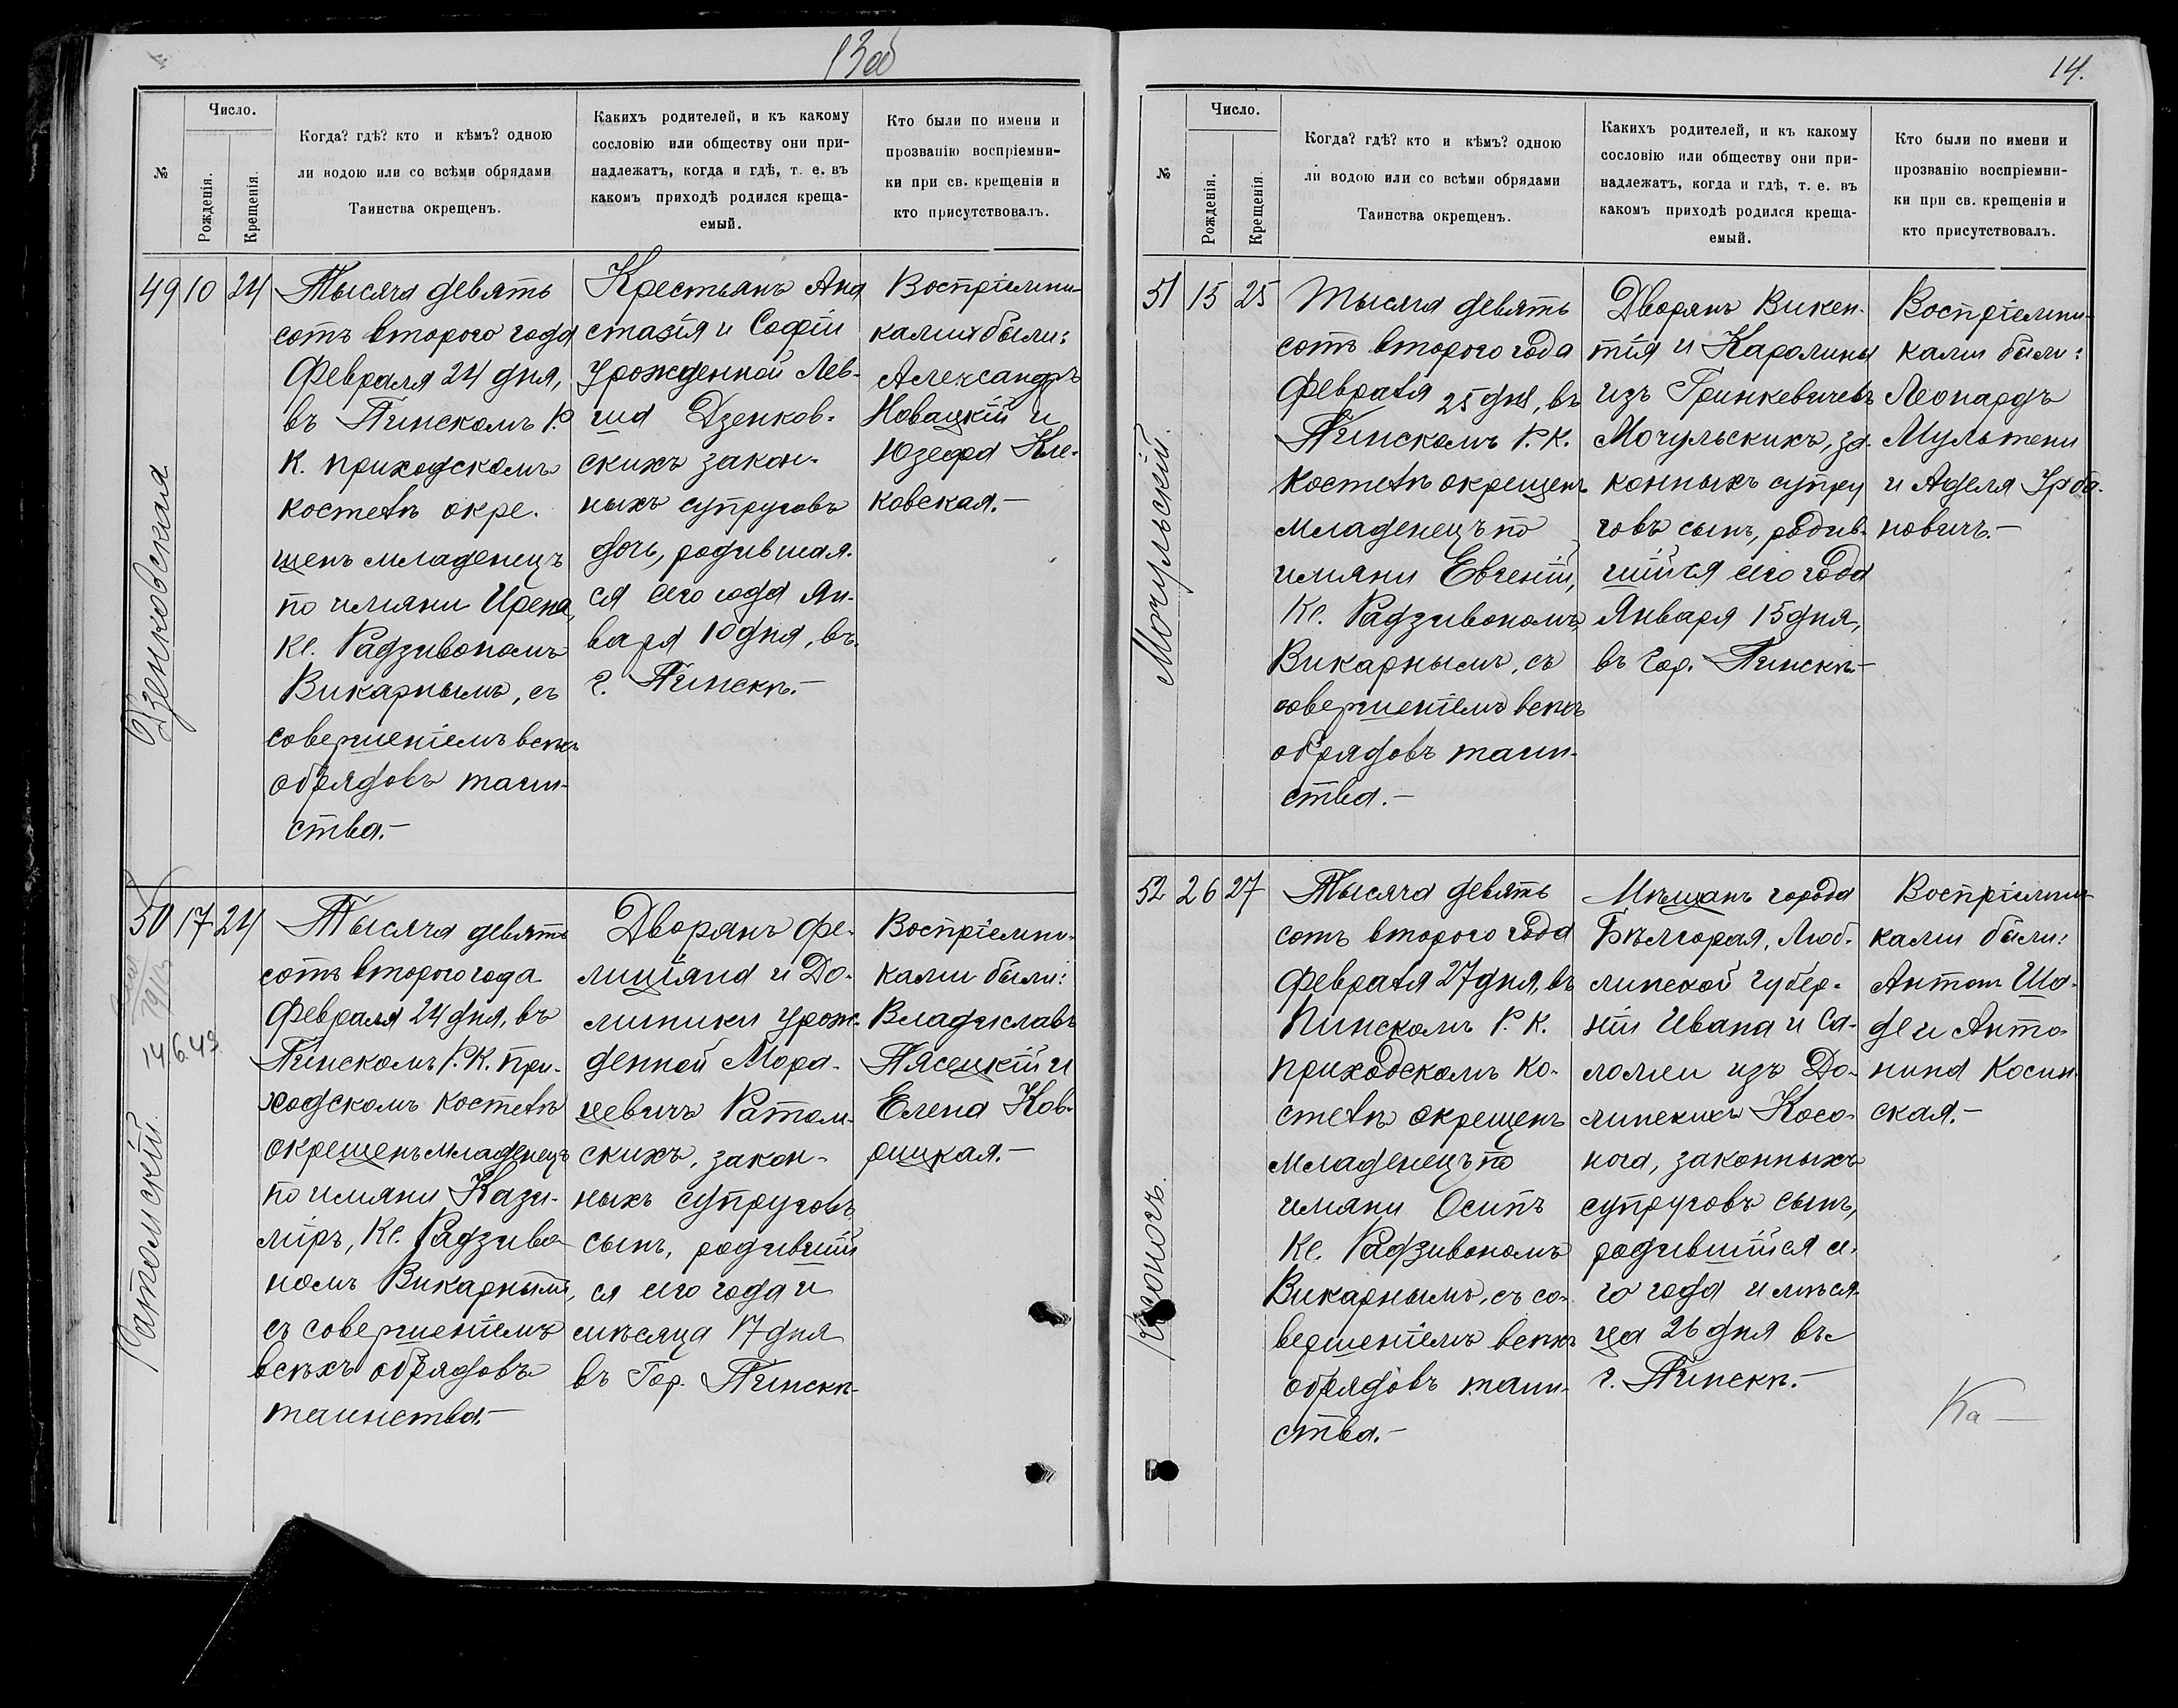 13об
Число.
№
Рожденія.
Крещенія.
Когда? гдѣ? кто и кѣмъ? одною
ли водою или со всѣми обрядами
Таинства окрещенъ.
Какихъ родителей, и къ какому
сословію или обществу они при-
надлежатъ, когда и гдѣ, т. е. въ
какомъ приходѣ родился креща-
емый.
Кто были по имени и
прозванію воспріемни-
ки при св. крещеніи и
кто присутствовалъ.
49 10 24
Дзенковская
Тысяча девять
сотъ второго года
Февраля 24 дня,
въ Пинскомъ Р.
К. приходскомъ
костелѣ окре-
щенъ младенецъ
по имяни Ирена,
Кс. Радзивономъ
Викарнымъ, съ
совершеніемъ всѣхъ
обрядовъ таин-
ства.-
Крестьянъ Ана
стазія и Софіи
урожденной Лев-
ша Дзенков-
скихъ закон-
ныхъ супруговъ
дочь, родившая-
ся сего года Ян-
варя 10 дня, въ
г. Пинскѣ.-
Воспріемни-
ками были:
Александръ
Новацкій и
Юзефа Кле-
ковская.-
50 17 24
14 6.49
Ратомскій.
Тысяча девять
сотъ второго года
Февраля 24 дня, въ
Пинскомъ Р. К. при-
ходскомъ костелѣ
окрещенъ младенецъ
по имяни Кази-
міръ, Кс. Радзиво-
номъ Викарнымъ,
съ совершеніемъ
всѣхъ обрядовъ
таинства.-
Дворянъ Фе-
лиціана и До-
миники урож-
денной Мора-
чевичъ Ратом-
скихъ, закон-
ныхъ супруговъ
сынъ, родившій
ся сего года и
мѣсяца 17 дня
въ Гор. Пинскѣ-
Воспріемни-
ками были:
Владиславъ
Пясецкій и
Елена Ков-
рицкая.-
14.
Число.
№
Рожденія.
Крещенія.
Когда? гдѣ? кто и кѣмъ? одною
ли водою или со всѣми обрядами
Таинства окрещенъ.
Какихъ родителей, и къ какому
сословію или обществу они при-
надлежатъ, когда и гдѣ, т. е. въ
какомъ приходѣ родился креща-
емый.
Кто были по имени и
прозванію воспріемни-
ки при св. крещеніи и
кто присутствовалъ.
51 15 25
Мочульскій.
Тысяча девять
сотъ второго года
Февраля 25 дня, въ
Пинскомъ Р. К.
костелѣ окрещенъ
младенецъ по
имяни Евгеній,
Кс. Радзивономъ
Викарнымъ, съ
совершеніемъ всѣхъ
обрядовъ таин-
ства.-
Дворянъ Викен-
тія и Каролины
изъ Гринкевичевъ
Мочульскихъ, за-
конныхъ супру
говъ сынъ, родив-
шійся сего года
Января 15 дня,
въ Гор. Пинскѣ-
Воспріемни-
ками были:
Леонардъ
Мультени
и Аделя Урба-
новичъ.-
52 26 27
Косоногъ.
Тысяча девять
сотъ второго года
Февраля 27 дня, въ
Пинскомъ Р. К.
приходскомъ ко-
стелѣ окрещенъ
младенецъ по
имяни Осипъ
Кс. Радзивономъ
Викарнымъ, съ со-
вершеніемъ всѣхъ
обрядовъ таин-
ства.-
Мѣщанъ города
Бѣлгорая, Люб-
линской губер-
ніи Ивана и Са-
ломеи изъ До-
линскихъ Косо-
нога, законныхъ
супруговъ сынъ,
родившійся се-
го года и мѣся-
ца 26 дня въ
г. Пинскѣ.-
Воспріемни-
ками были:
Антон Ша-
де и Анто-
нина Косин-
ская.-
Ка —